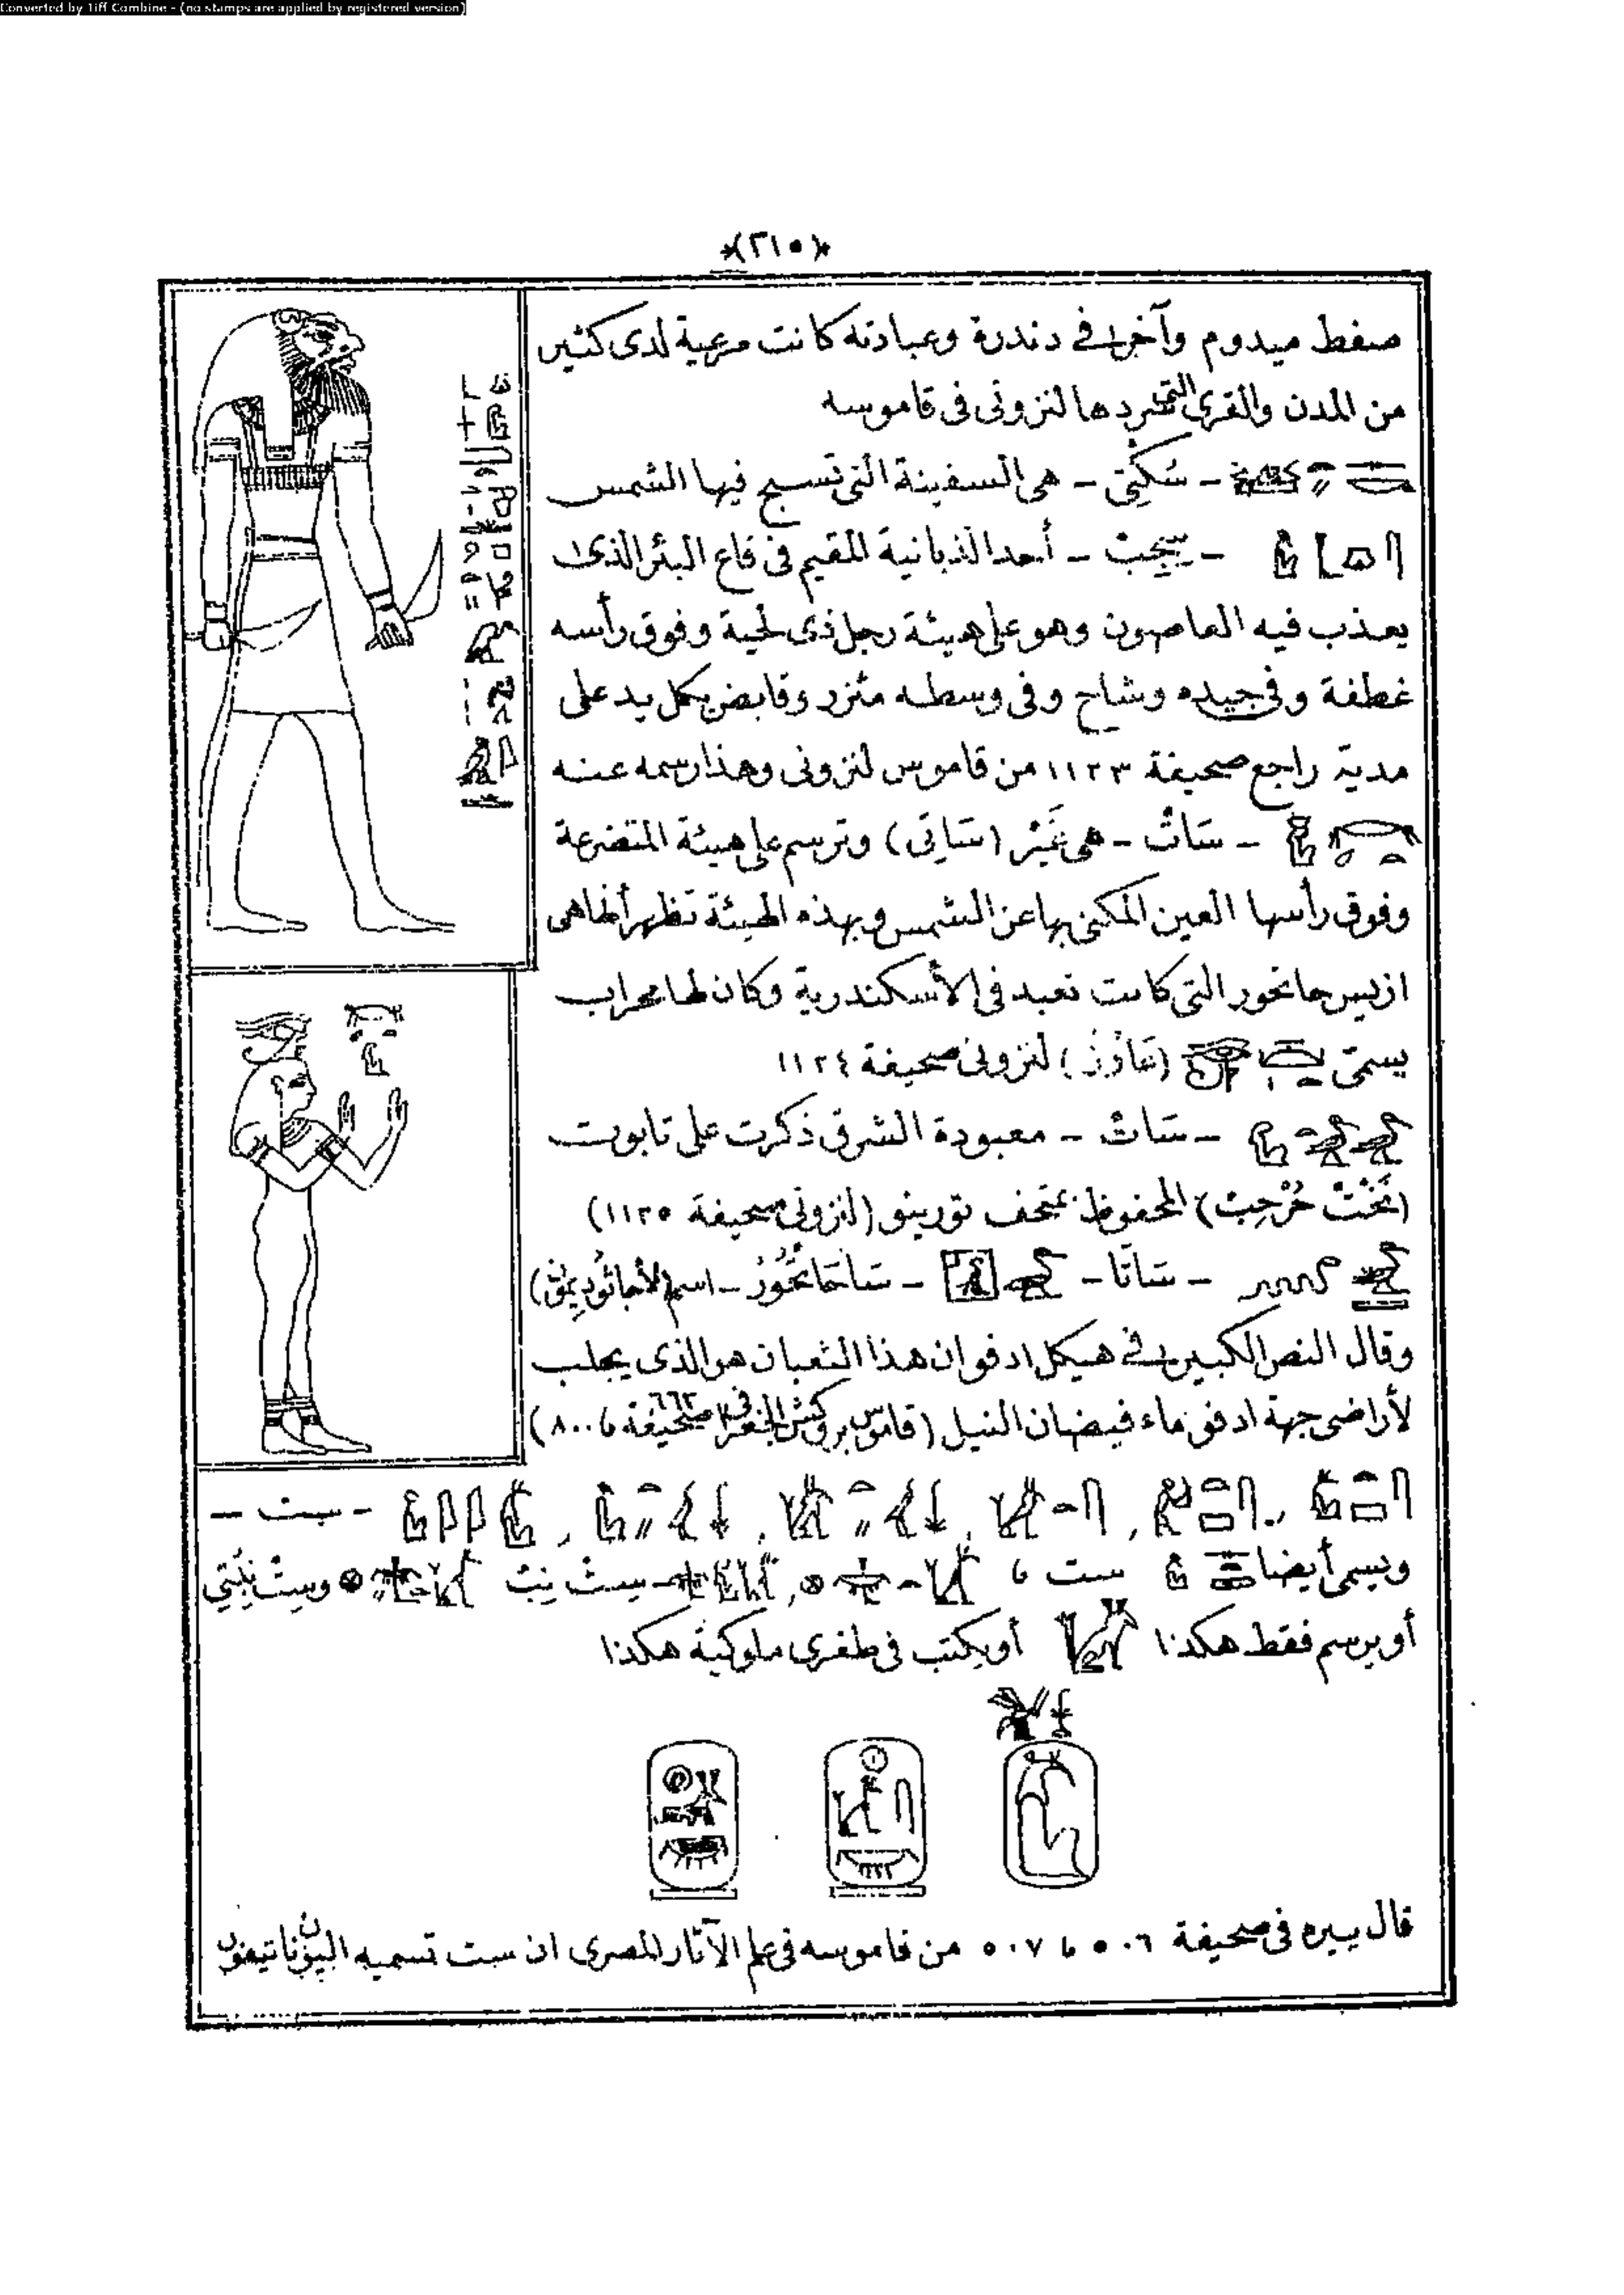 Converted by Tiff Combine - (no stamps are applied by registered version)
*(٢١٥)*
صفط ميدوم وآخر في دندرة وعبادته كانت مرعية لدى كثير
من المدن والقرى التي سردها لنزونى فى قاموسه
- سُكْتِى - هى السفينة التى تسبح فيها الشمس
- أحد الذبانية المقيم فى قاع البئر الذى
يعذب فيه العاصون وهو على هيئة رجل ذى لحية وفوق رأسه
غطفة وفى جيده وشاح وفى وسطه مئزر وقابض بكل يد على
مدية راجع صحيفة ١١٢٣ من قاموس لنزونى وهذا رسمه عنه
- سَاتْ - هى غير (سَاتِى) وترسم على هيئة المتضرعة
وفوق رأسها العين المكنى بها عن الشمس وبهذه الهيئة تظهر أنها هى
ازيس حاتحور التى كانت تعبد فى الأسكندرية وكان لها محراب
يسمى لنزونى صحيفة ١١٢٤
- سَاتْ - معبودة الشرق ذكرت على تابوت
المحفوظ بمتحف تورينو (لنزونى صحيفة ١١٢٥)
- سَاتَا - - سَاحَاتْحُورْ - اسم
وقال النص الكبير في هيكل ادفو ان هذا الثعبان هو الذى يجلب
لأراضى جهة ادفو ماء فيضان النيل (قاموس بروكش الجغرافى صحيفة ٦٦٣ ٨٠٠)
- ست -
ويسمى أيضا ست سِتْ نِبْتْ وسِتْ نِبْتِى
أو يرسم فقط هكذا أو يكتب فى طغرى ملوكية هكذا
قال بييره فى صحيفة ٥٠٦ ٥٠٧ من قاموسه فى علم الآثار المصرى ان ست تسميه اليونان تيفون